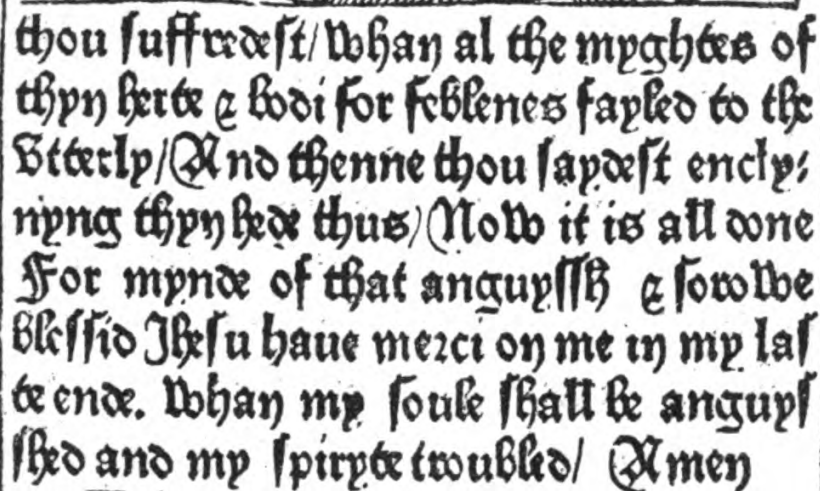 thou suffredest/ whan al the myghtes of
thyn herte & bodi for feblenes fayled to the
Vtterly/ And thenne thou saydest encly⸗
nyng thyn hede thus/ Now it is all done
For mynde of that anguyssh & sorowe
blessid Ihesu haue merci on me in my las
te ende. whan my soule shall be anguys
shed and my spiryte troubled/ Amen